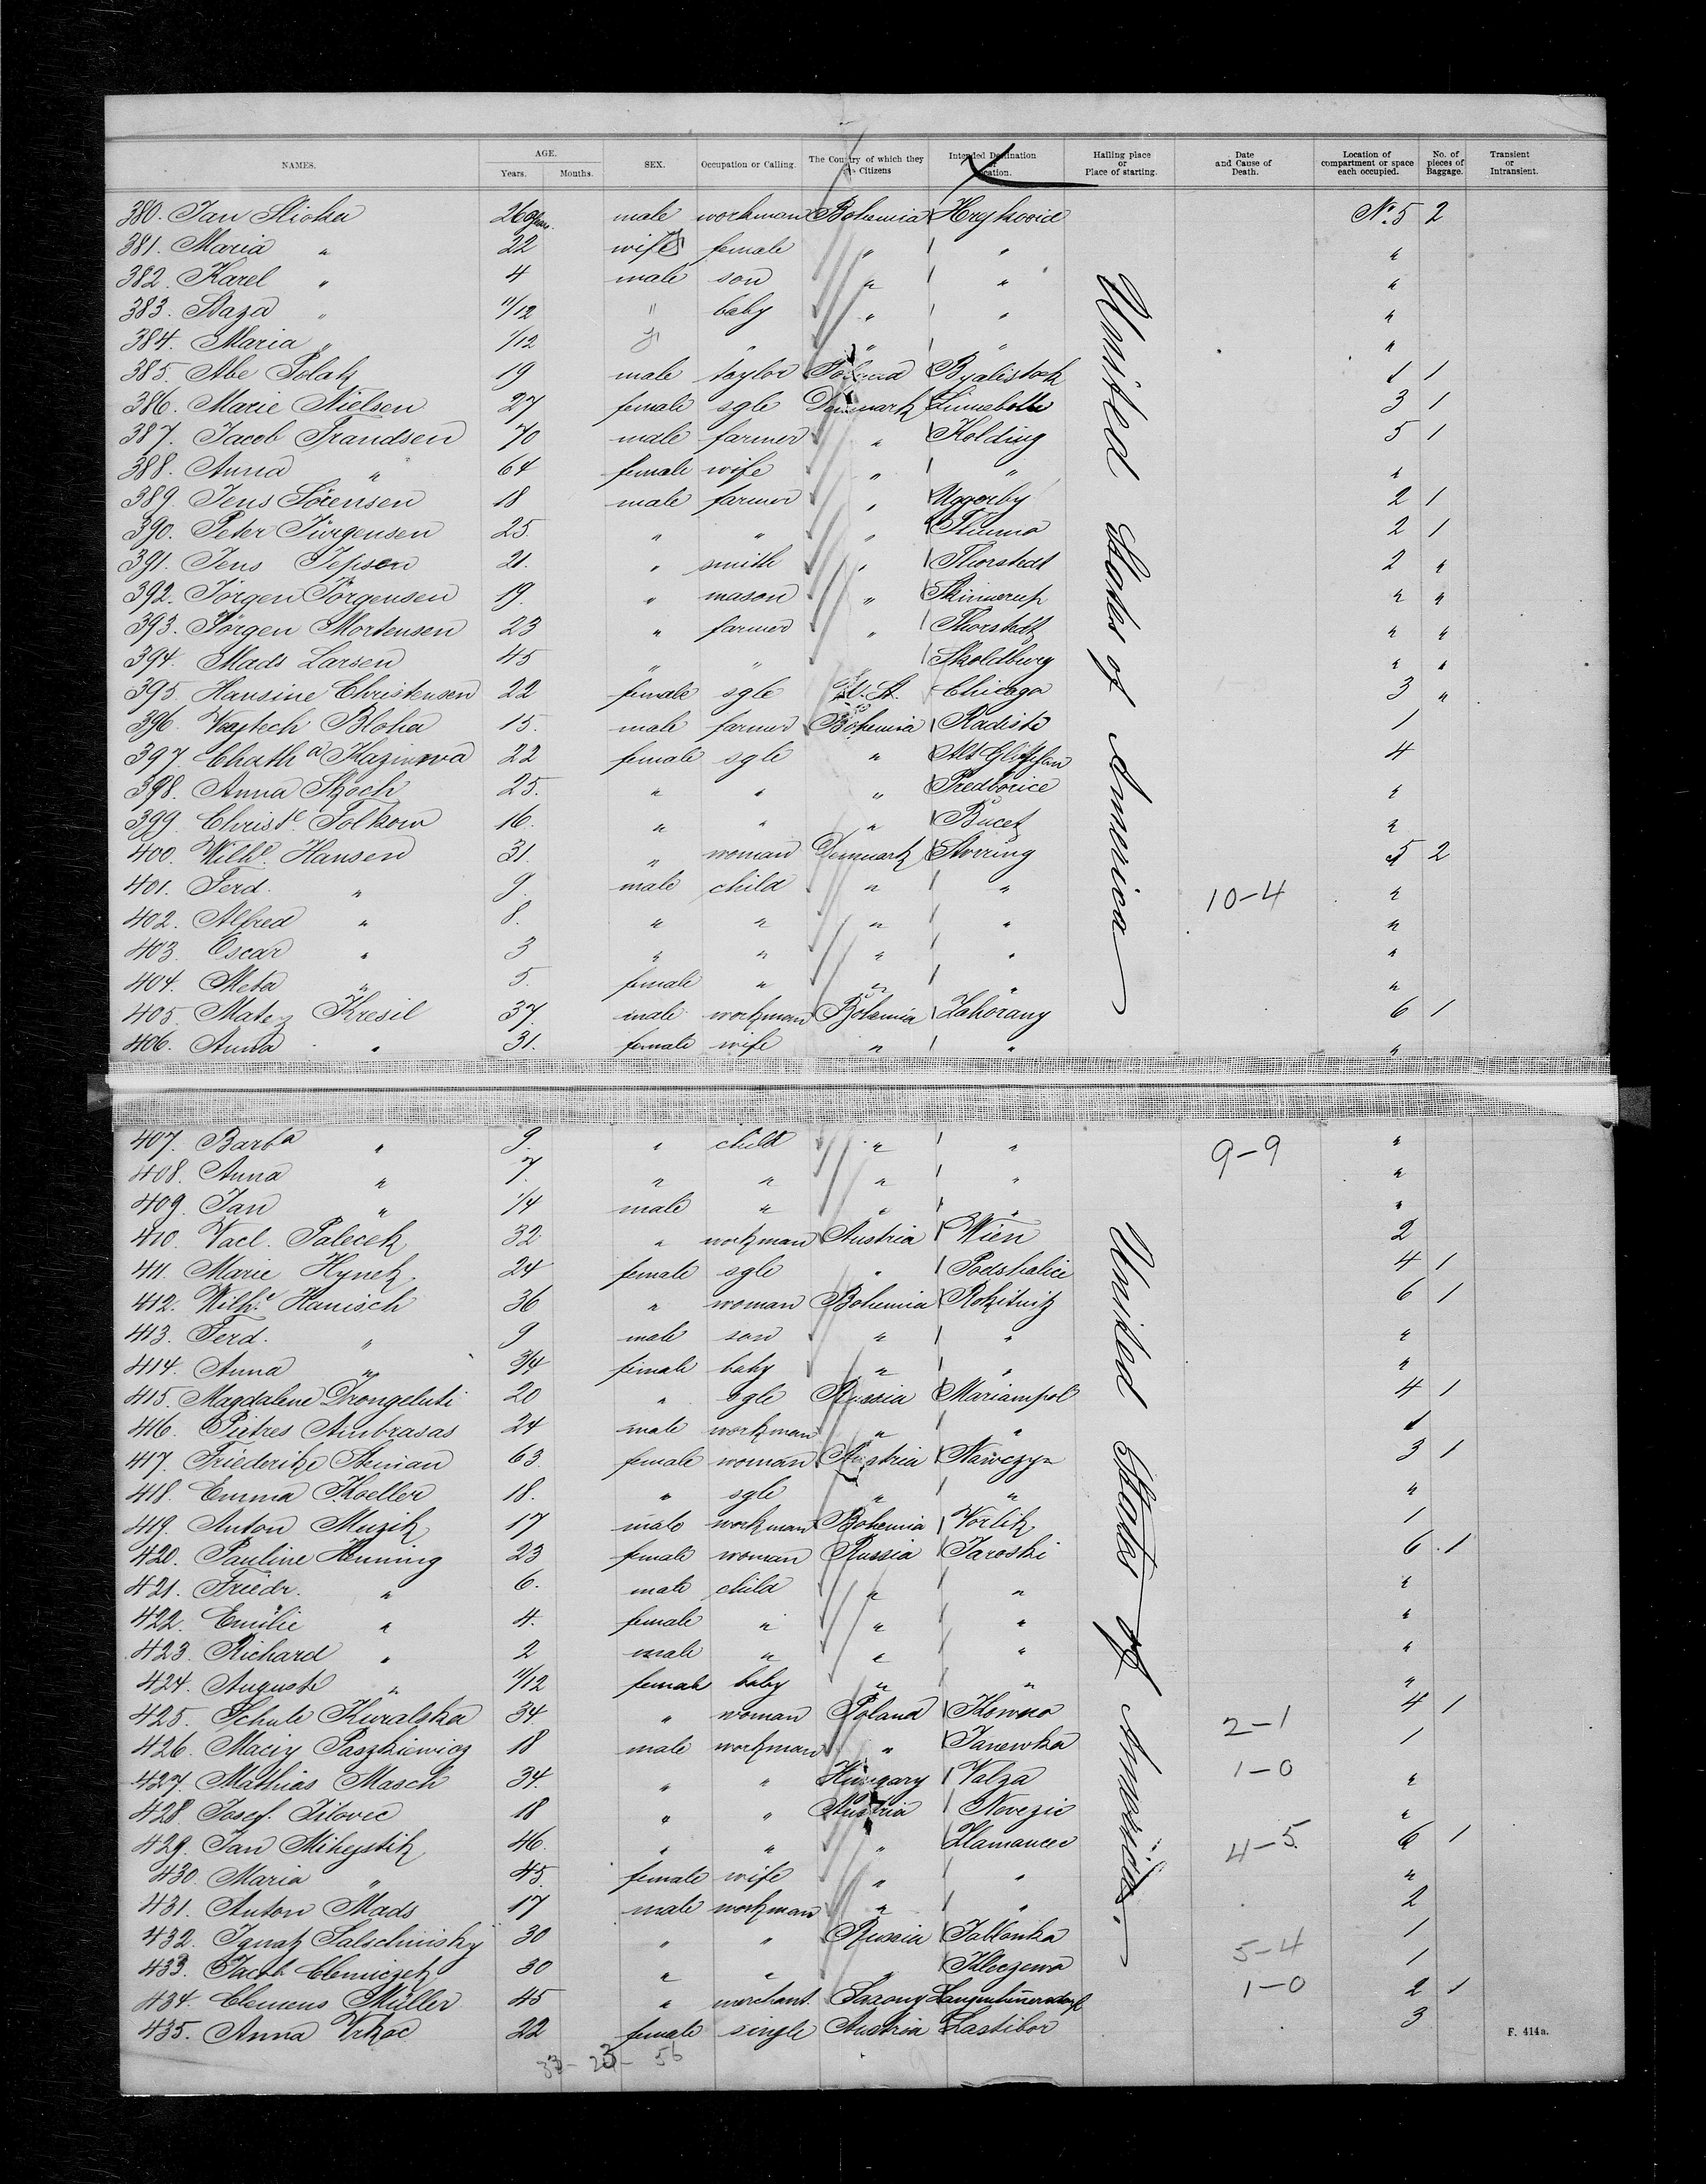 NAMES. AGE. Years. Months. SEX. Occupation or Calling. The Country of which they are Citizens Intended Destination or Location. Hailing place or Place of starting. Date and Cause of Death. Location of compartment or space each occupied. No. of pieces of Baggage. Transient or Intransient.
380. Jan 26 male workman Bohemia No. 5 2
381. Maria " 22 wife female " " "
382. Karel " 4 male son " " "
383. " 11/12 " baby " " "
384. Maria " 1/12 " " " "
385. Abe Polak 19 male taylor Byalistock 1 1
386. Marie Nielsen 27 female sgle Denmark 3 1
387. Jacob Frandsen 70 male farmer " Kolding 5 1
388. Anna " 64 female wife " " "
389. Jens Sörensen 18 male farmer " Uggerby 2 1
390. Peter Jürgensen 25. " " " 2 1
391. Jens Jepsen 21. " smith " Thorstedt 2 "
392. Jörgen Jörgensen 19. " mason " Skinnerup " "
393. Jörgen Mortensen 23 " farmer " Thorstedt " "
394. Mads Larsen 45 " " " Skoldburg " "
395. Hansine Christensen 22 female sgle U. St. Chicago 3 "
396. Bloha 15. male farmer Bohemia Radist 1
397. 22 female sgle " 4
398. Anna 25. " " " Predborice "
399. Christe. Folkow 16. " " " Bucet "
400. Wilhe. Hansen 31. " woman Denmark 5 2
401. Ferd. " 9. male child " " 10-4 "
402. Alfred " 8. " " " " "
403. Oscar " 3 " " " " "
404. Meta " 5. female " " " "
405. Matez Kresil 37. male workman Bohemia Zahorany 6 1
406. Anna " 31. female wife " " "
United States of America
407. Barba " 9. " child " " 9-9 "
408. Anna " 7. " " " " "
409. Jan " 1/4 male " " " "
410. Vacl. Palecek 32 " workman Austria Wien 2
411. Marie Hynek 24 female sgle " Podskalice 4 1
412. Wilhe. Hanisch 36 " woman Bohemia Rokitnitz 6 1
413. Ferd. " 9 male son " " "
414. Anna " 3/4 female baby " " "
415. Magdalene Drongeluti 20 " sgle Russia Mariampol 4 1
416. Pietres Ambrasas 24 male workman " " 1
417. Friederike 63 female woman Austria Nawczyn 3 1
418. Emma Koeller 18. " sgle " " "
419. Anton Muzik 17 male workman Bohemia Vorlik 1
420. Pauline Henning 23 female woman Russia Jaroski 6 1
421. Friedr. " 6. male child " " "
422. Emilie " 4. female " " " "
423. Richard " 2 male " " " "
424. Auguste " 11/12 female baby " " "
425. Schule Kuralska 34 " woman Poland Kowno 2-1 4 1
426. Maciy Paszkiewicz 18 male workman " Janewka 1
427. Mathias Masch 34. " " Hungary Valza 1-0 "
428. Josef. Jilovec 18 " " Austria Nevezic "
429. Jan Mikejstik 46. " " " 4-5 6 1
430. Maria " 45. female wife " " "
431. Anton Mads 17 male workman " " 2
432. Ignatz Salschinsky 30 " " Russia Jablonka 1
433. Jacob 30 " " " Kleczewa 5-4 1
434. Clemens Müller 45 " merchant. Saxony 1-0 2 1
435. Anna Vrkoc 22 female single Austria Lastibor 3
United States of America.
33-23-56
F. 414a.